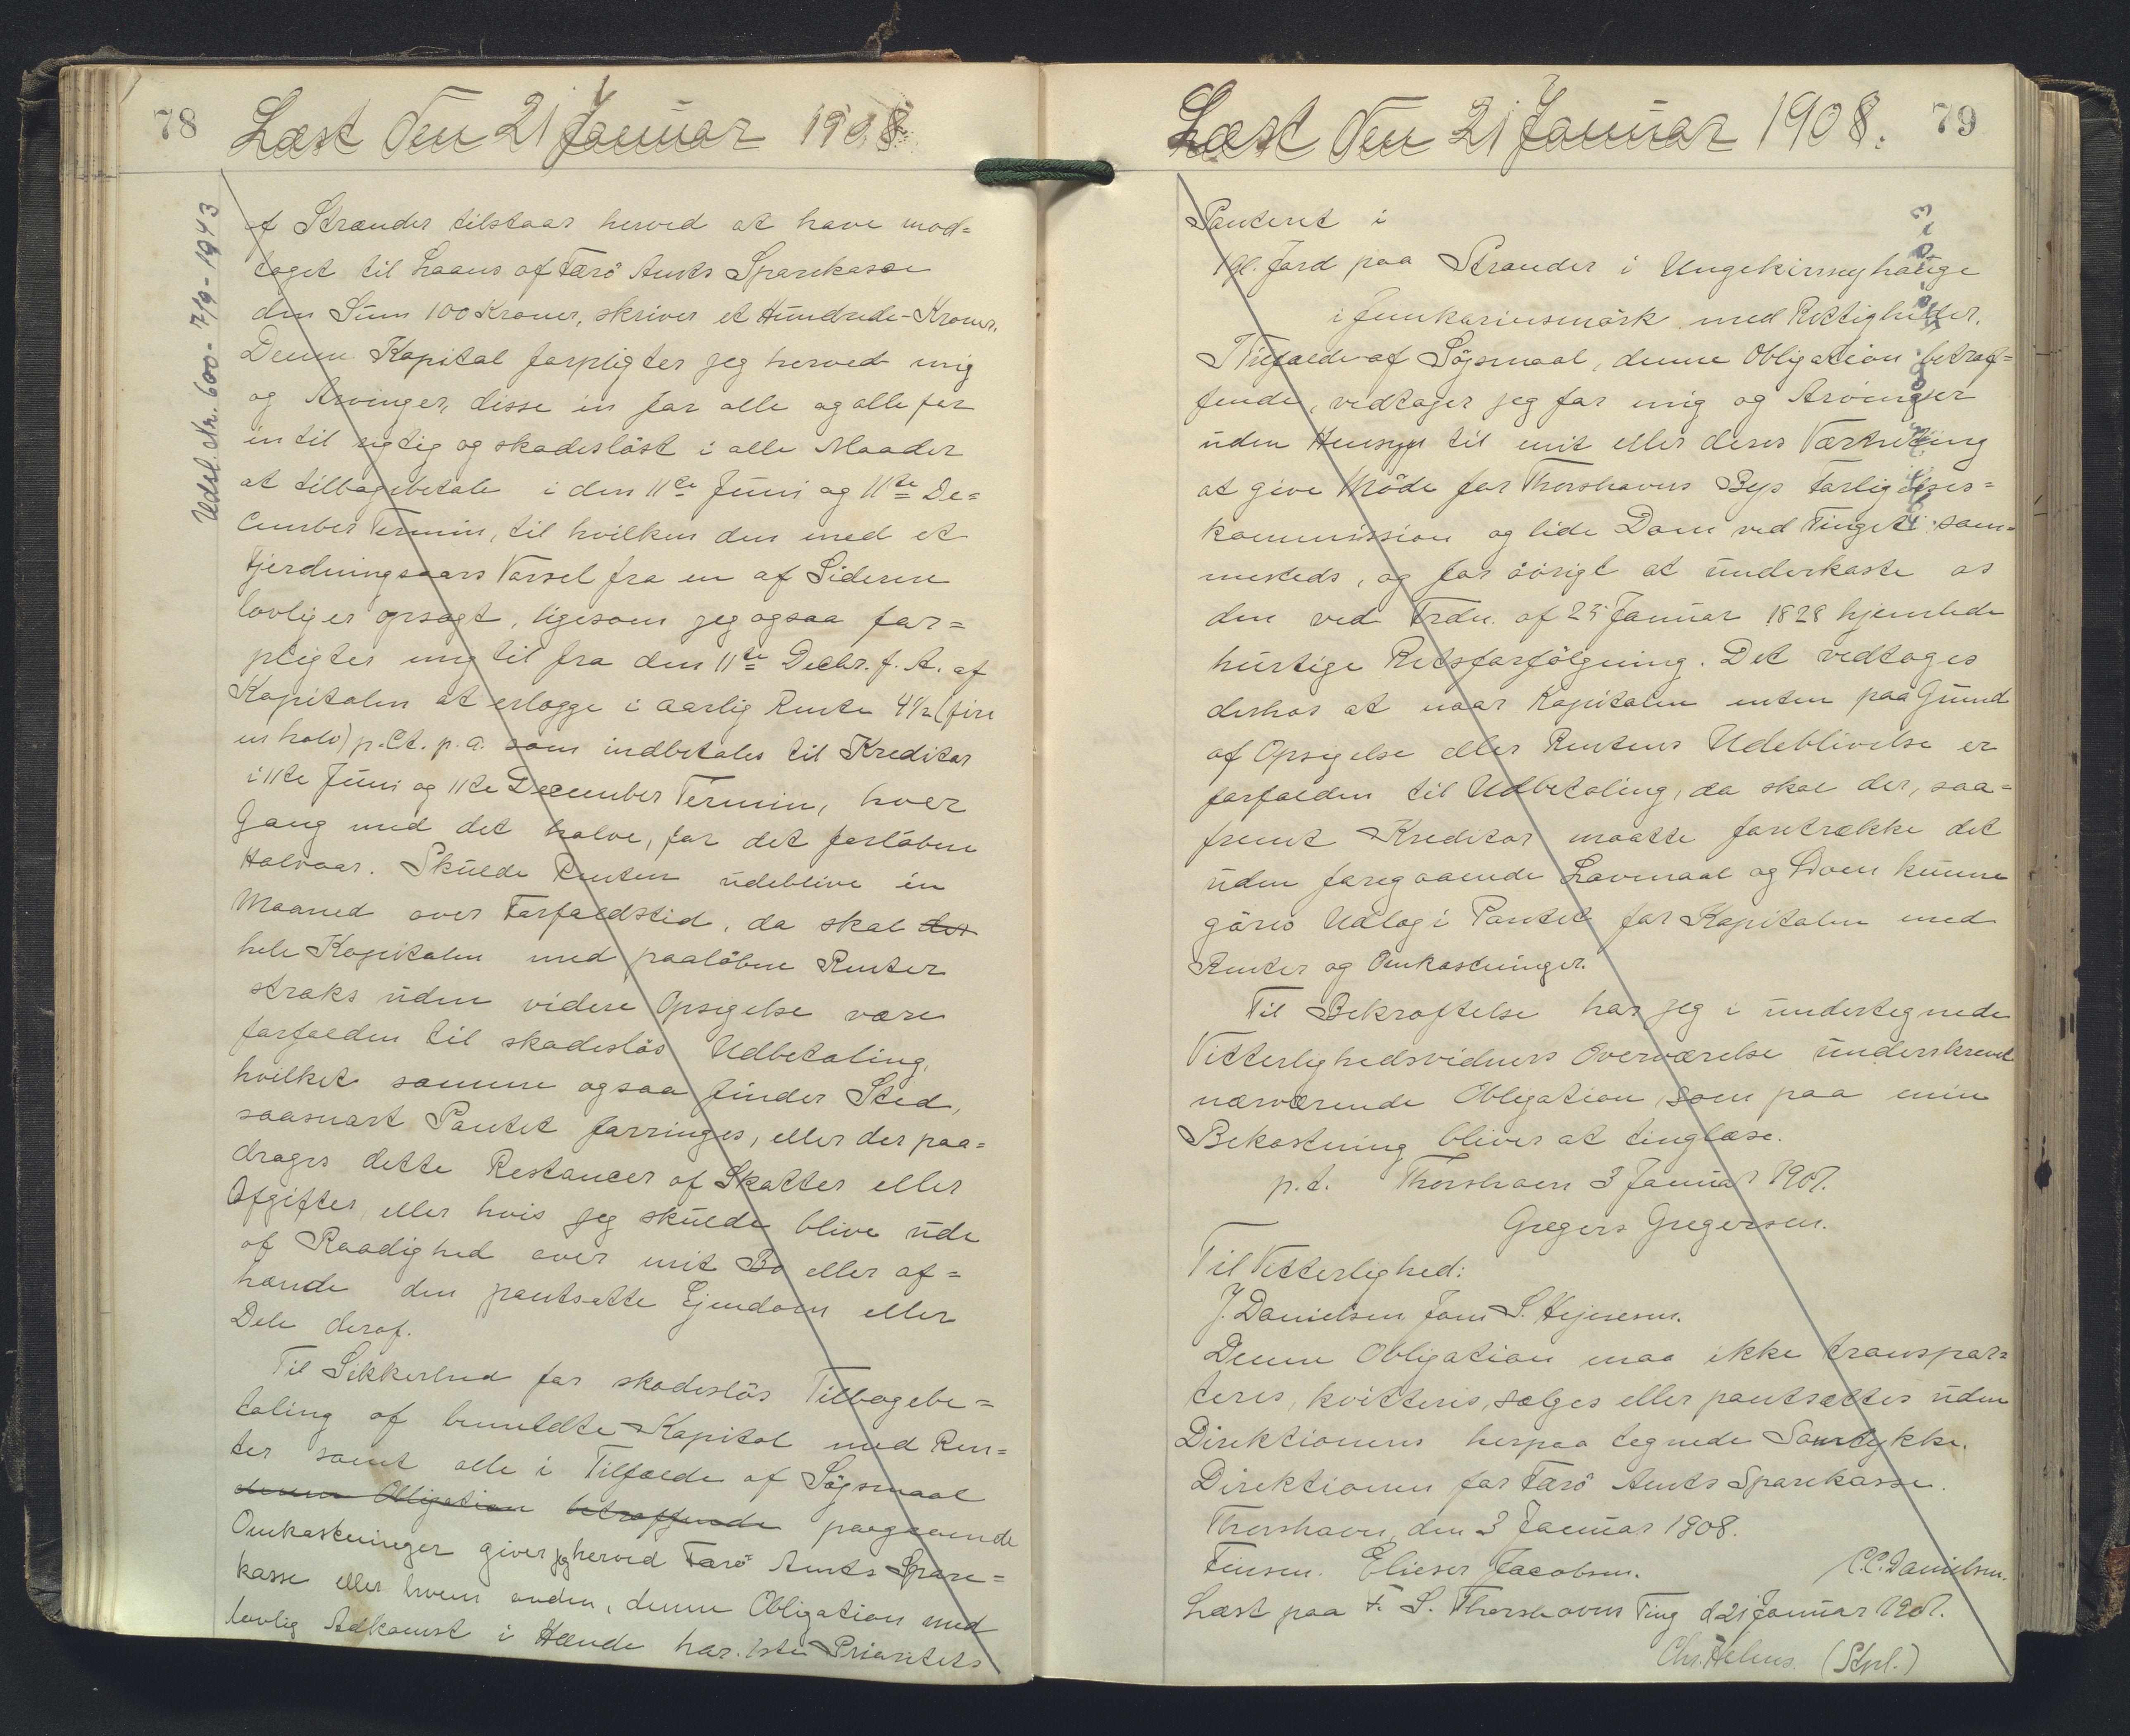 78
Læst Den 21 Januar 1908.
Udsl. Nr. 600 - 7/9 - 1943
af Strænder tilstaar herved at have mod=
taget til Laans af Færö Amts Sparekasse
den Sum 100 Kroner, skriver et Hundrede-Kroner.
Denne Kapital forpligter jeg herved mig
og Arvinger, disse en for alle og alle for
en til rigtig og skadeslöst i alle Maader
at tilbagebetale i den 11te Juni og 11te De=
cember Termin, til hvilken den med et
Fjerdningsaars Varsel fra en af Siderne
lovlig er opsagt, ligesom jeg ogsaa for=
pligter mig til fra den 11te Decbr. f. A. af
Kapitalen at erlægge i aarlig Rente 4½ (fire
en halv) p.Ct. p.a. som indbetales til Kreditor
i 11te Juni og 11te December Termin, hver
Gang med det halve, for det forlöbne
Halvaar. Skulde Renten udeblive én
Maaned over Forfaldstid, da skal der
hele Kapitalen med paalöbne Renter
straks uden videre Opsigelse være
forfalden til skadeslös Udbetaling,
hvilket samme ogsaa finder Sted,
saasnart Pantet forringes, eller der paa=
drages dette Restancer af Skatter eller
Afgifter, eller hvis jeg skulde blive ude
af Raadighed over mit Bo eller af=
hænde den pantsatte Ejendom eller
Dele deraf.
Til Sikkerhed for skadeslös Tilbagebe=
taling af bemeldte Kapital med Ren=
ter samt alle i Tilfælde af Söjsmaal
denne Obligation betræffende paagaaende
Omkostninger giver jeg herved Færö Amts Spare=
kasse eller hvem anden, denne Obligation med
lovlig Adkomst i Hænde har. 1ste Prioritets
Læst Den 21 Januar 1908. 79
Panteret i
1 gl. Jord paa Strænder i Ungekirneyhauge
med Rettigheder.
I Tilfælde af Söjsmaal, denne Obligation betræf=
fende, vedtager jeg for mig og Arvinger
uden Hensyn til mit eller deres Værneting
at give Möde for Thorshavns Bys Forligelses=
kommission og lide Dom ved Tinget sam=
mesteds, og for övrigt at underkaste os
den ved Frdn. af 25 Januar 1828 hjemlede
hurtige Retsforfölgning. Det vedtages
derhos at naar Kapitalen enten paa Grund
af Opsigelse eller Rentens Udeblivelse er
forfalden til Udbetaling, da skal der, saa=
fremt Kreditor maatte foretrække det
uden foregaaende Lovmaal og Dom kunne
göres Udlæg i Pantet for Kapitalen med
Renter og Omkostninger.
Til Bekræftelse har jeg i undertegnede
Vitterlighedsvidners Overværelse underskrevet
nærværende Obligation som paa min
Bekostning bliver at tinglæse.
p.t. Thorshavn 3 Januar 1907.
Gregers Gregersen.
Til Vitterlighed:
J. Danielsen Joen S. Hejnesen.
Denne Obligation maa ikke transpor=
teres, kvitteres, sælges eller pantsættes uden
Direktionens herpaa tegnede Samtykke.
Direktionen for Færö Amts Sparekasse.
Thorshavn, den 3 Januar 1908.
Finsen. Elieser Jacobsen. C.C. Danielsen.
Læst paa F. S. Thorshavns Ting d 21 Januar 1907.
(Stpl.)